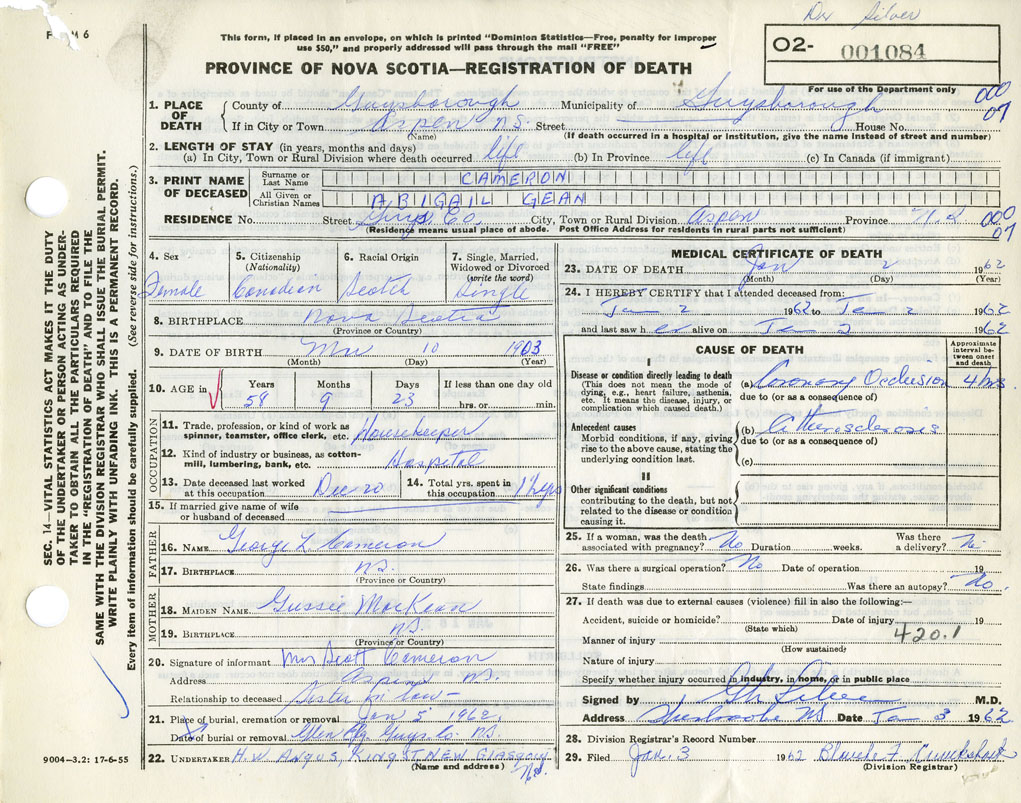 Dr Silver
FORM 6
This form, if placed in an envelope, on which is printed "Dominion Statistics—Free, penalty for improper
use $50," and properly addressed will pass through the mail "FREE"
O2- 001084
PROVINCE OF NOVA SCOTIA—REGISTRATION OF DEATH
For use of the Department only
000
07
1. PLACE OF DEATH County of Guysborough Municipality of Guysborough
If in City or Town Aspen N.S. Street House No.
(Name) (If death occurred in a hospital or institution, give the name instead of street and number)
2. LENGTH OF STAY (in years, months and days)
(a) In City, Town or Rural Division where death occurred life (b) In Province life (c) In Canada (if immigrant)
3. PRINT NAME OF DECEASED Surname or Last Name CAMERON
All Given or Christian Names ABIGAIL GEAN
RESIDENCE No. Street Guys Co City, Town or Rural Division Aspen Province N.S
(Residence means usual place of abode. Post Office Address for residents in rural parts not sufficient)
000
07
4. Sex Female
5. Citizenship (Nationality) Canadian
6. Racial Origin Scotch
7. Single, Married, Widowed or Divorced (write the word) Single
8. BIRTHPLACE Nova Scotia
(Province or Country)
9. DATE OF BIRTH Mar 10 1903
(Month) (Day) (Year)
10. AGE in Years 58 Months 9 Days 23 If less than one day old hrs. or min.
OCCUPATION
11. Trade, profession, or kind of work as spinner, teamster, office clerk, etc. Housekeeper
12. Kind of industry or business, as cotton-mill, lumbering, bank, etc. Hospital
13. Date deceased last worked at this occupation Dec 20 14. Total yrs. spent in this occupation 1 yrs
15. If married give name of wife or husband of deceased
FATHER
16. NAME George L Cameron
17. BIRTHPLACE N.S.
(Province or Country)
MOTHER
18. MAIDEN NAME Gussie MacKeen
19. BIRTHPLACE N.S.
(Province or Country)
20. Signature of informant Mrs Scott Cameron
Address Aspen N.S.
Relationship to deceased Sister in law
21. Place of burial, cremation or removal Jan 5 1962
Date of burial or removal Guys Co. N.S.
22. UNDERTAKER H.W ANGUS, KING ST NEW GLASGOW
(Name and address) N.S.
MEDICAL CERTIFICATE OF DEATH
23. DATE OF DEATH Jan 2 1962
(Month) (Day) (Year)
24. I HEREBY CERTIFY that I attended deceased from:
Jan 2 1962 to Jan 2 1962
and last saw her alive on Jan 2 1962
CAUSE OF DEATH
Approximate interval between onset and death
I
Disease or condition directly leading to death
(This does not mean the mode of dying, e.g., heart failure, asthenia, etc. It means the disease, injury, or complication which caused death.)
(a) Coronary Occlusion 4 hrs
due to (or as a consequence of)
Antecedent causes
Morbid conditions, if any, giving rise to the above cause, stating the underlying condition last.
(b) Atherosclerosis
due to (or as a consequence of)
(c)
II
Other significant conditions
contributing to the death, but not related to the disease or condition causing it.
25. If a woman, was the death associated with pregnancy? No Duration weeks. Was there a delivery? No
26. Was there a surgical operation? No Date of operation 19
State findings Was there an autopsy? No.
27. If death was due to external causes (violence) fill in also the following:—
Accident, suicide or homicide? Date of injury 19
(State which)
Manner of injury 420.1
(How sustained)
Nature of injury
Specify whether injury occurred in industry, in home, or in public place
Signed by M.D.
Address Sherbrooke NS Date Jan 3 1962
28. Division Registrar's Record Number
29. Filed Jan. 3 1962 Blanche F. Cruickshank
(Division Registrar)
SEC. 14—VITAL STATISTICS ACT MAKES IT THE DUTY
OF THE UNDERTAKER OR PERSON ACTING AS UNDER-
TAKER TO OBTAIN ALL THE PARTICULARS REQUIRED
IN THE "REGISTRATION OF DEATH" AND TO FILE THE
SAME WITH THE DIVISION REGISTRAR WHO SHALL ISSUE THE BURIAL PERMIT.
WRITE PLAINLY WITH UNFADING INK. THIS IS A PERMANENT RECORD.
Every item of information should be carefully supplied. (See reverse side for instructions.)
9004-3.2: 17-6-55